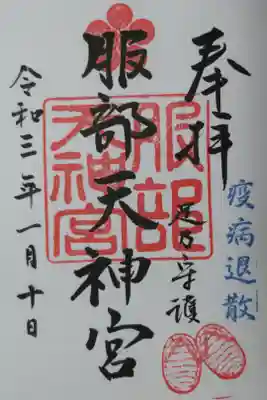 奉拝
疫病退散
足の守護
服部天神宮
服部天神宮
令和三年一月十日